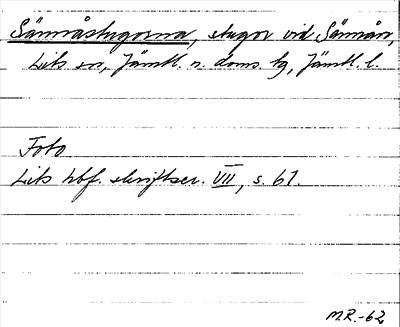 Sännåstugorna, stugor vid Sännån,
Lits sn, Jämtl. n. doms. tg, Jämtl. l.
Foto
Lits hbf. skriftser. VII, s. 61.
M.R.-62